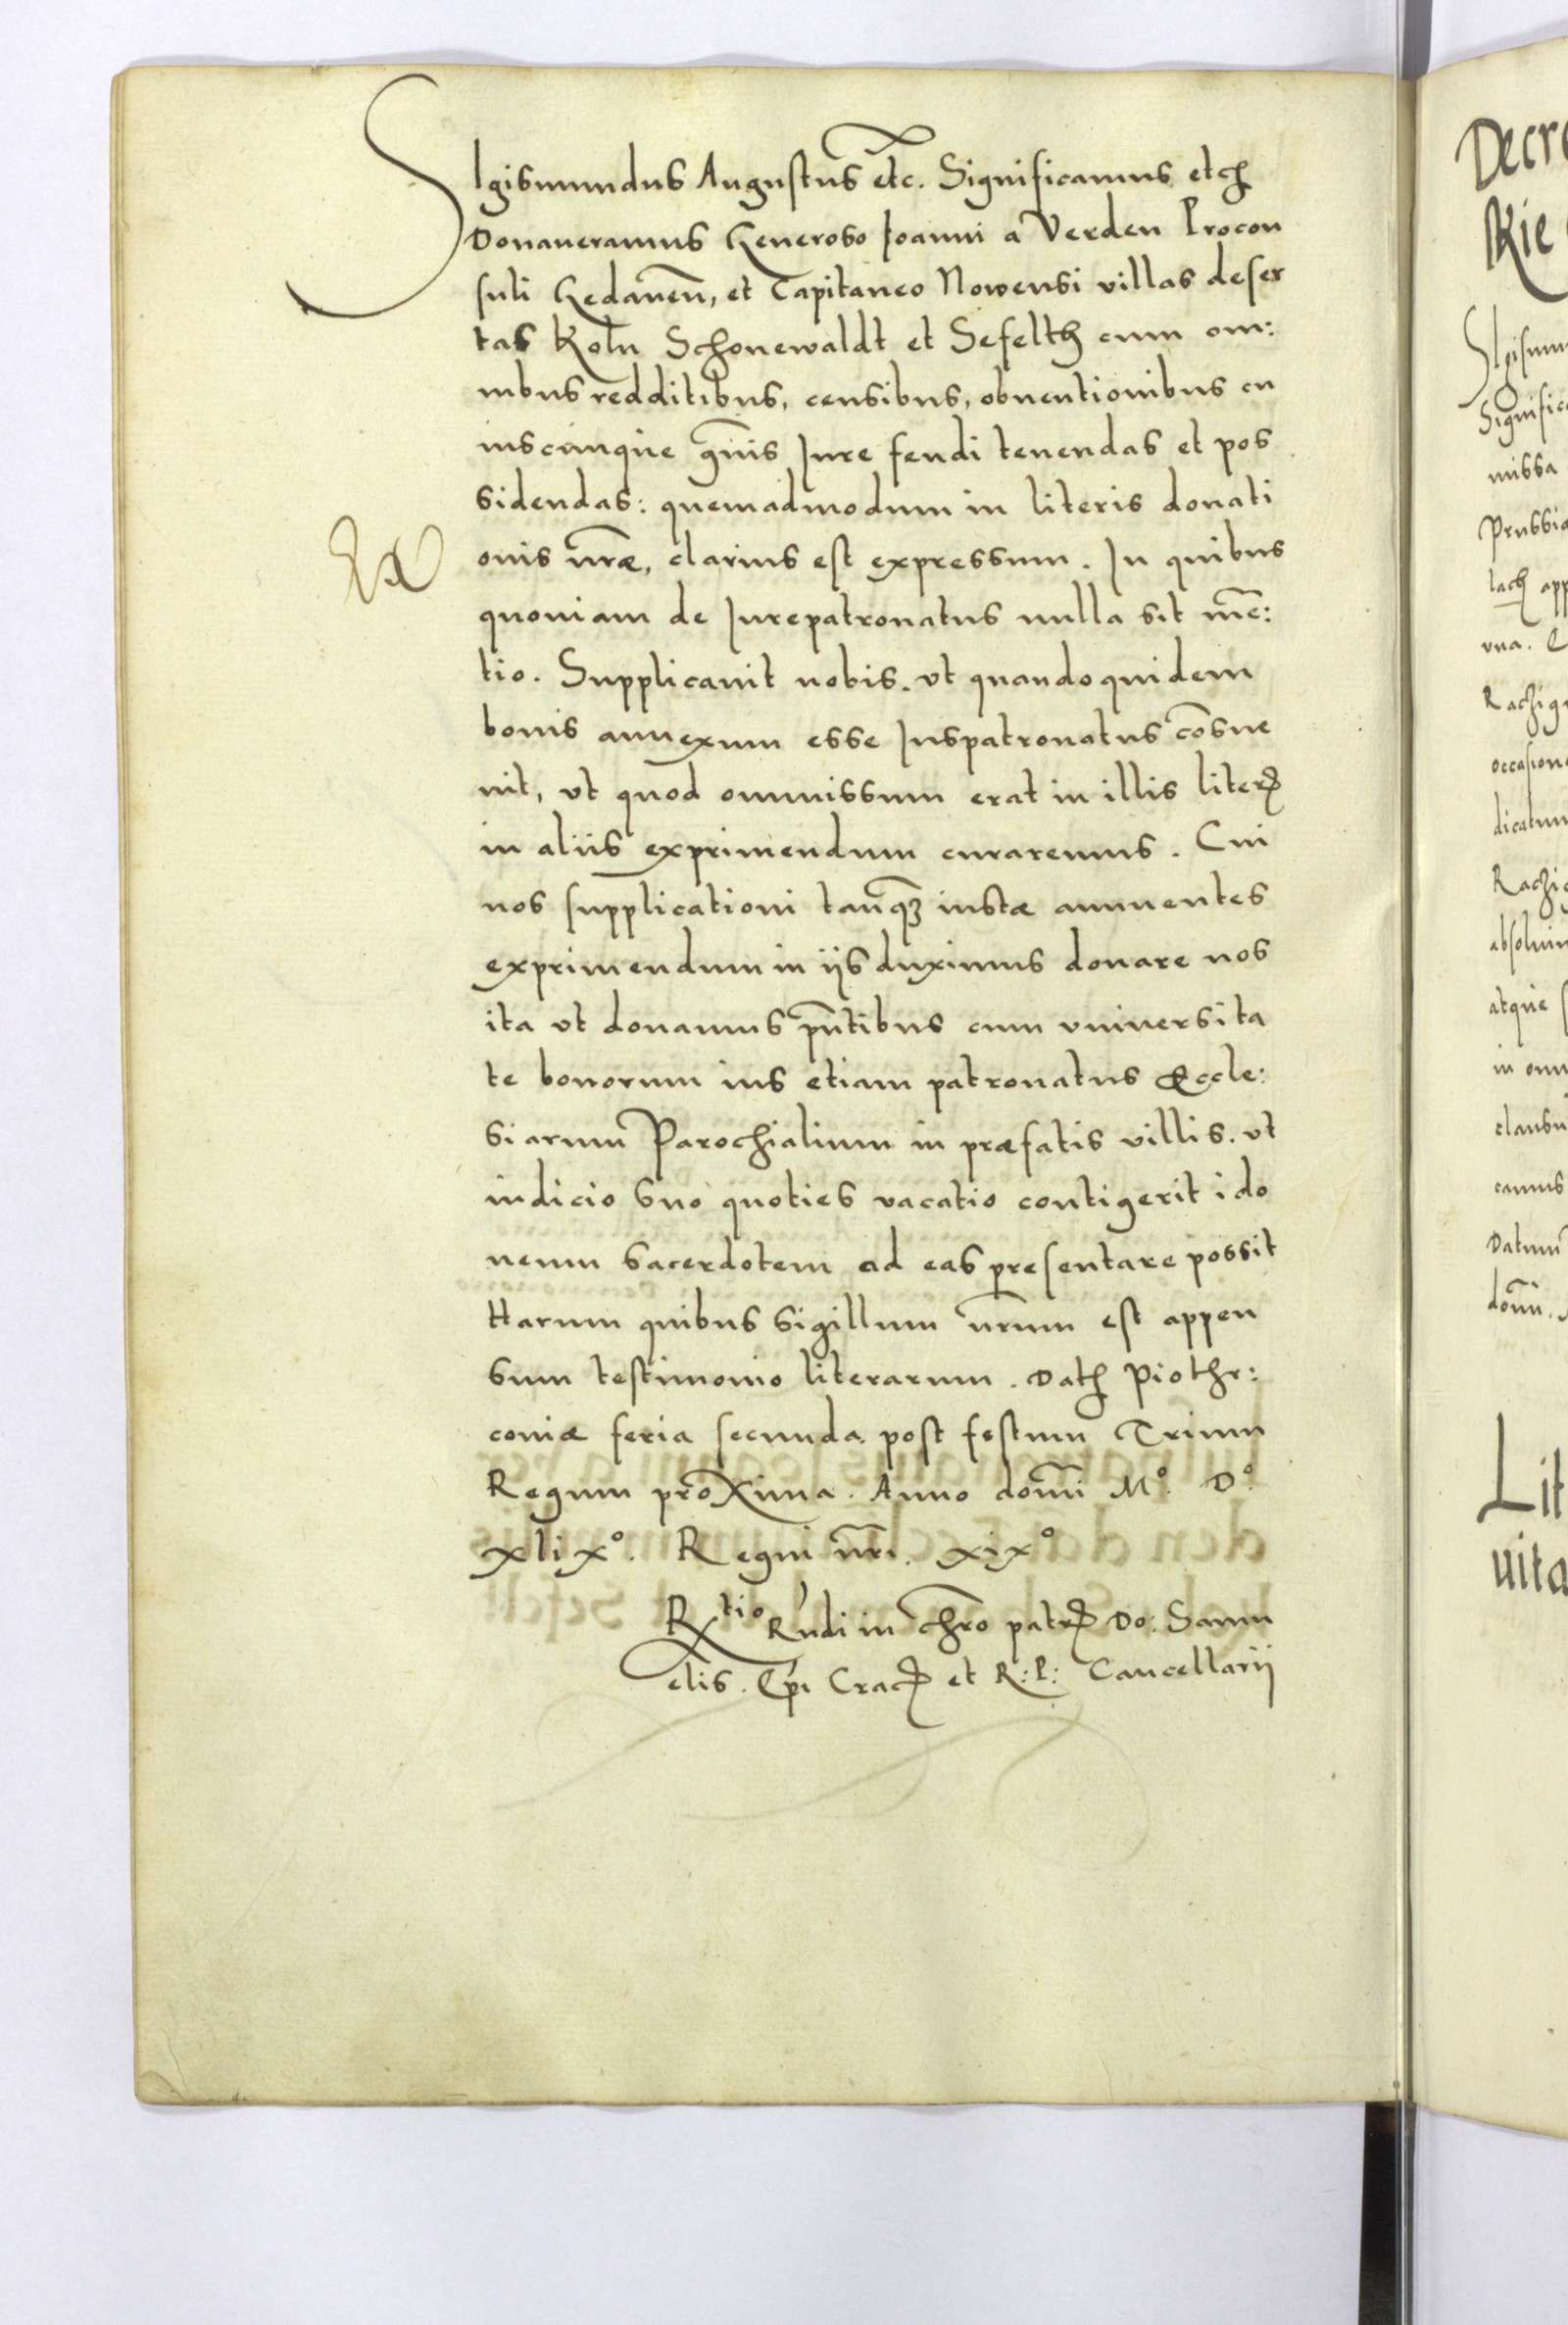 SIgismundus Augustus etc. Significamus etcꝫ
Donaueramus Generoso Ioanni a Verden Procon
suli Gedaneñ, et Capitaneo Nowensi villas deser
tas Koln Schonewaldt et Sefelth cum om:
nibus redditibus, censibus, obuentionibus cu
iuscunque gñis Iure feudi tenendas et pos
sidendas: quemadmodum in literis donati
onis nr̃æ, clarius est expressum. In quibus
quoniam de Iurepatronatus nulla sit mẽ:
tio. Supplicauit nobis. vt quandoquidem
bonis annexum esse Iuspatronatus cõsue
uit, vt quod ommissum erat in illis literꝭ
in aliis exprimendum curaremus. Cui
nos supplicationi tanq̃ꝫ iustæ annuentes
exprimendum in ijs duximus donare nos
ita vt donamus pñtibus cum vniuersita
te bonorum ius etiam patronatus Eccle:
siarum Parochialium in præfatis villis. vt
iudicio suo quoties vacatio contigerit ido
neum sacerdotem ad eas presentare possit
Harum quibus sigillum nr̃um est appen
sum testimonio literarum. Datꝫ Piothr:
coniæ feria secunda post festum Trium
Regum proxima. Anno domĩ M°. D°.
xlix°. Regni nr̃i. xix°
Rtio Rñdi in chr̃o patrꝭ Do: Samu
elis. Ep̃i Cracꝭ et R: P: Cancellarij
Decre
Kie
SIgismu
Signific
missa
Prussia
lach app
vna.
Rachig
occasion
dicatum
Rachig
absolui
atque
in omn
clausu
camus
Datum
domĩ.
Lit
uita